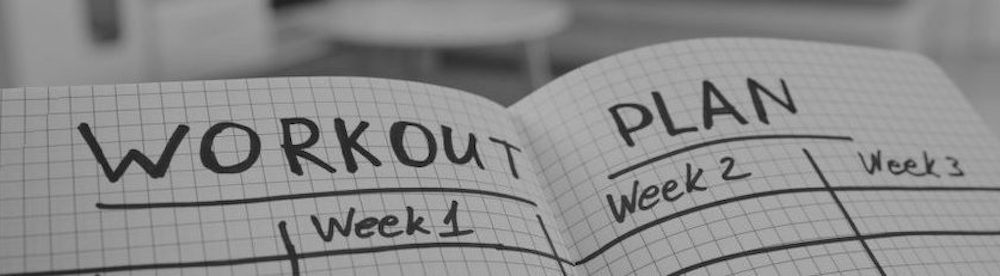 WORKOUT PLAN
Week 1 Week 2 Week 3